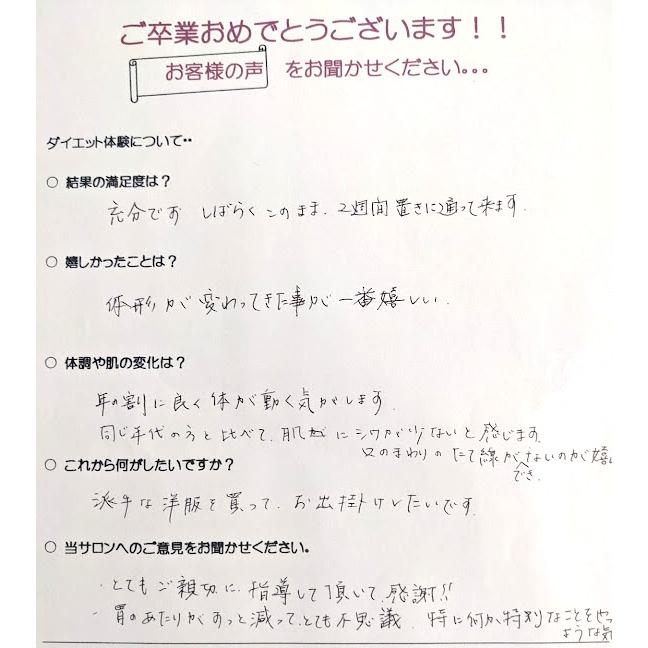 ご卒業おめでとうございます！！
お客様の声 をお聞かせください。。。
ダイエット体験について・・
○ 結果の満足度は？
充分です しばらくこのまま、2週間置きに通って来ます．
○ 嬉しかったことは？
体形が変わってきた事が一番嬉しい．
○ 体調や肌の変化は？
年の割に良く体が動く気がします．
同じ年代の方と比べて、肌がにシワが少ないと感じます
口のまわりのたて線ができないのが嬉し
○ これから何がしたいですか？
派手な洋服を買って、お出掛けしたいです．
○ 当サロンへのご意見をお聞かせください。
・とてもご親切に、指導して頂いて、感謝!!
・胃のあたりがずっと減って、とても不思議．特に何か特別なことをやっ
ような気